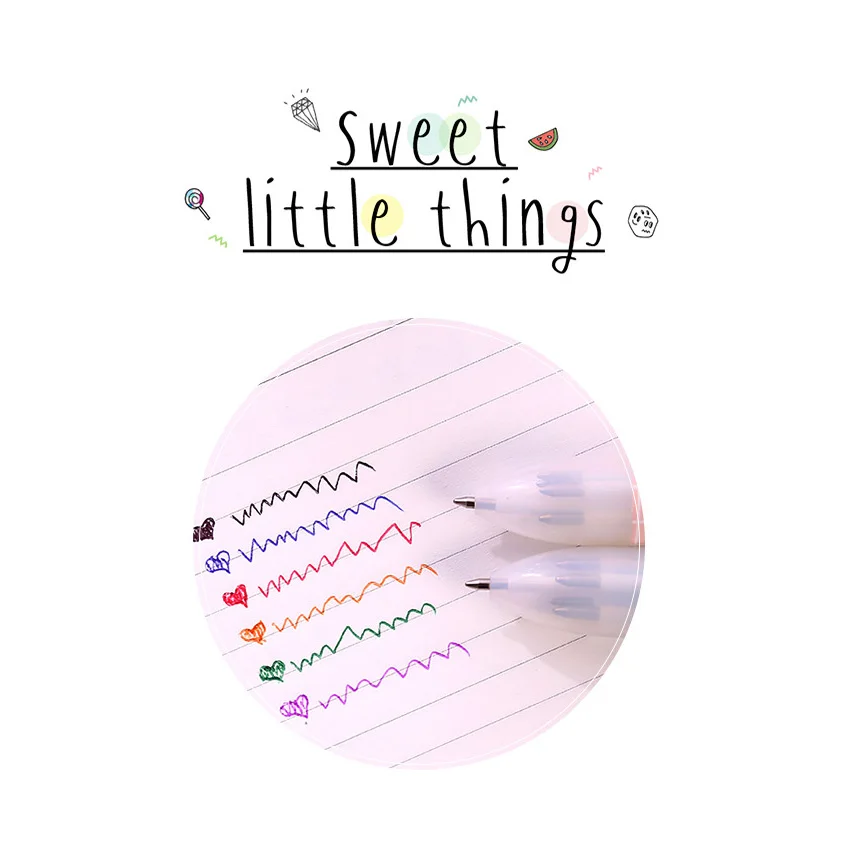 sweet
little things